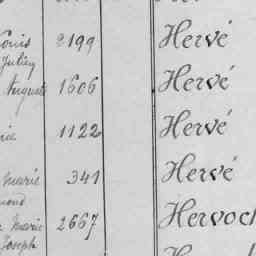 Louis 2199 Hervé
Julien
Auguste 1606 Hervé
1122 Hervé
Marie 341 Hervé
Marie 2667 Hervoch
Joseph